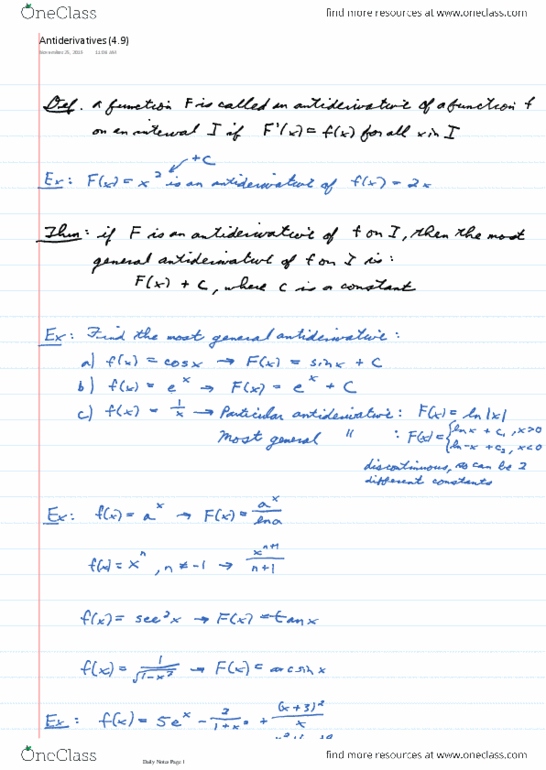 OneClass
find more resources at www.oneclass.com
Antiderivatives (4.9)
November 25, 2013 11:04 AM
Def. A function F is called an antiderivative of a function f
on an interval I if F'(x) = f(x) for all x in I
+C
Ex: F(x) = x² is an antiderivative of f(x) = 2x
Thm: if F is an antiderivative of f on I, then the most
general antiderivative of f on I is:
F(x) + C, where C is a constant
Ex: Find the most general antiderivative:
a) f(x) = cosx → F(x) = sinx + C
b) f(x) = e^x → F(x) = e^x + C
c) f(x) = 1/x → Particular antiderivative: F(x) = ln|x|
Most general " : F(x) = { lnx + C₁, x>0
ln-x + C₂, x<0
discontinuous, so can be 2
different constants
Ex: f(x) = a^x → F(x) = a^x/lna
f(x) = x^n, n ≠ -1 → x^(n+1)/(n+1)
f(x) = sec²x → F(x) = tanx
f(x) = 1/√(1-x²) → F(x) = arcsinx
Ex: f(x) = 5e^x - 2/(1+x²) + (x+3)²/x
OneClass
Daily Notes Page 1
find more resources at www.oneclass.com